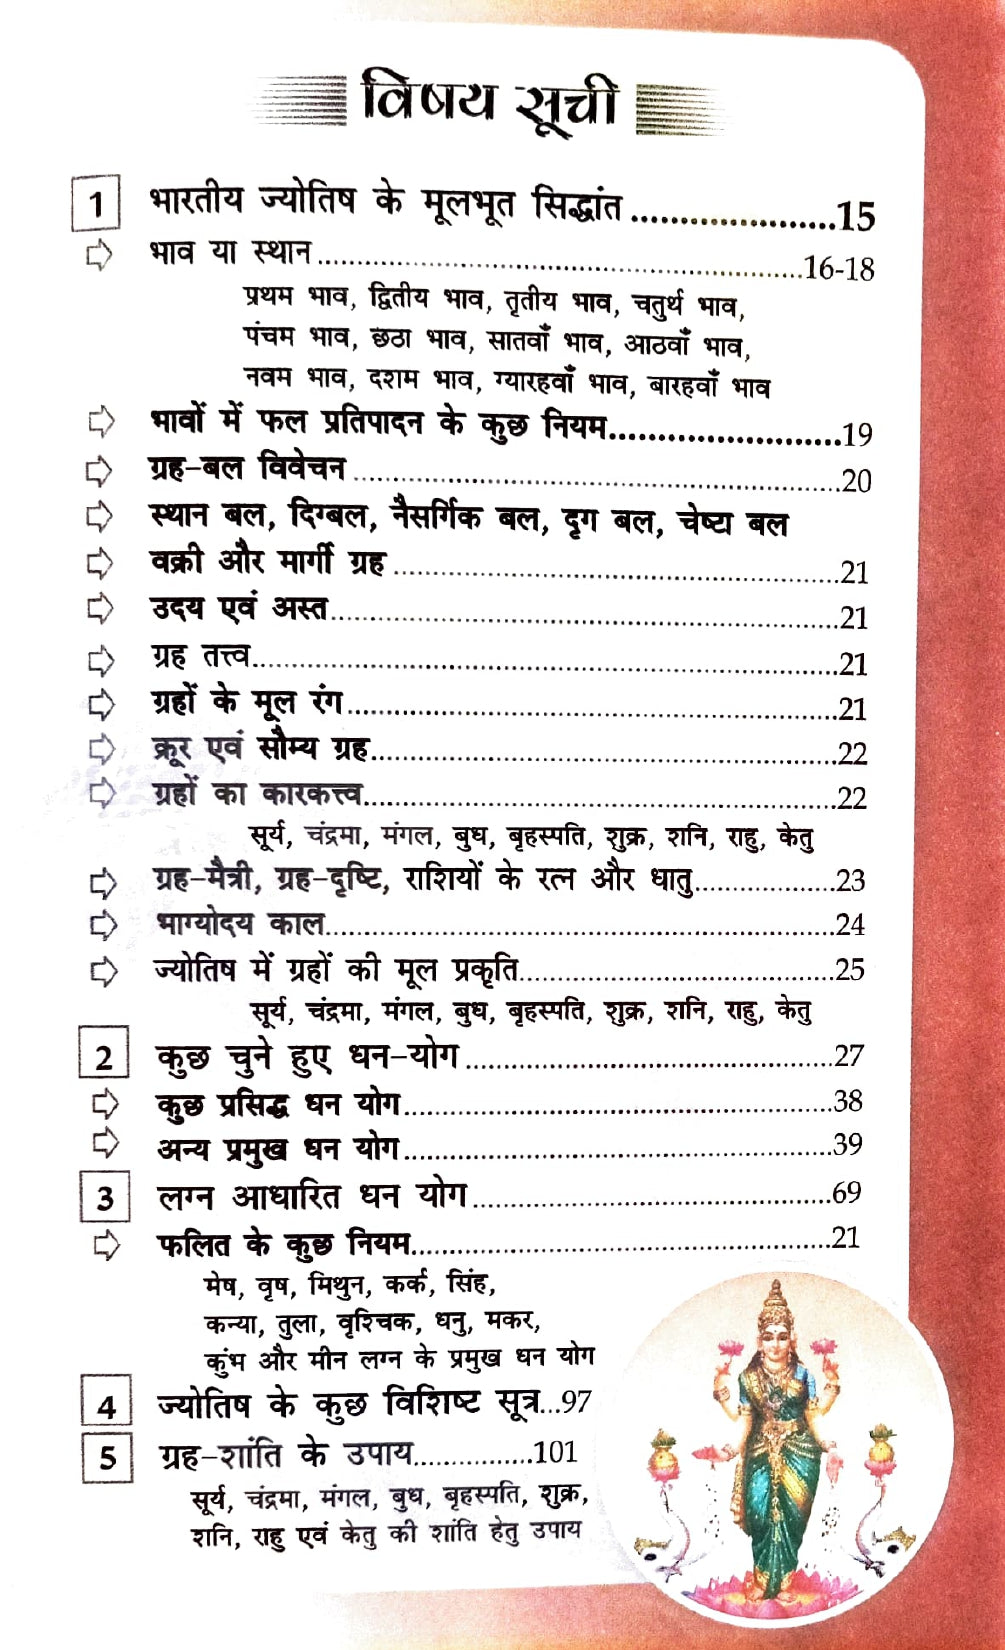 विषय सूची
1 भारतीय ज्योतिष के मूलभूत सिद्धांत.....................15
भाव या स्थान.................................................16-18
प्रथम भाव, द्वितीय भाव, तृतीय भाव, चतुर्थ भाव,
पंचम भाव, छठा भाव, सातवाँ भाव, आठवाँ भाव,
नवम भाव, दशम भाव, ग्यारहवाँ भाव, बारहवाँ भाव
भावों में फल प्रतिपादन के कुछ नियम........................19
ग्रह-बल विवेचन.................................................20
स्थान बल, दिग्बल, नैसर्गिक बल, दृग बल, चेष्टा बल
वक्री और मार्गी ग्रह.............................................21
उदय एवं अस्त...................................................21
ग्रह तत्त्व...........................................................21
ग्रहों के मूल रंग..................................................21
क्रूर एवं सौम्य ग्रह...............................................22
ग्रहों का कारकत्त्व................................................22
सूर्य, चंद्रमा, मंगल, बुध, बृहस्पति, शुक्र, शनि, राहु, केतु
ग्रह-मैत्री, ग्रह-दृष्टि, राशियों के रत्न और धातु...............23
भाग्योदय काल....................................................24
ज्योतिष में ग्रहों की मूल प्रकृति................................25
सूर्य, चंद्रमा, मंगल, बुध, बृहस्पति, शुक्र, शनि, राहु, केतु
2 कुछ चुने हुए धन-योग......................................27
कुछ प्रसिद्ध धन योग............................................38
अन्य प्रमुख धन योग............................................39
3 लग्न आधारित धन योग.....................................69
फलित के कुछ नियम...........................................21
मेष, वृष, मिथुन, कर्क, सिंह,
कन्या, तुला, वृश्चिक, धनु, मकर,
कुंभ और मीन लग्न के प्रमुख धन योग
4 ज्योतिष के कुछ विशिष्ट सूत्र...97
5 ग्रह-शांति के उपाय...............101
सूर्य, चंद्रमा, मंगल, बुध, बृहस्पति, शुक्र,
शनि, राहु एवं केतु की शांति हेतु उपाय